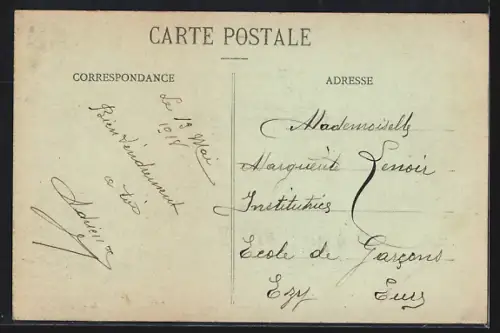 CARTE POSTALE
CORRESPONDANCE
Le 13 Mai
1918
Bien tendrement
à toi
ADRESSE
Mademoiselle
Marguerite Lenoir
Institutrice
Ecole de Garçons
Ezy Eure